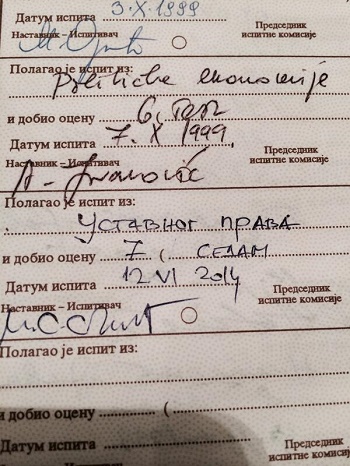 Датум испита 3.X.1999
Наставник – Испитивач
Председник
испитне комисије
Полагао је испит из:
Политичке економије
и добио оцену 6,
Датум испита 7. X 1999
Наставник – Испитивач
Председник
испитне комисије
Полагао је испит из:
УСТАВНОГ ПРАВА
и добио оцену 7 ( СЕДАМ
Датум испита 12 VI 2014
Наставник – Испитивач
Председник
испитне комисије
Полагао је испит из:
и добио оцену (
Датум испита
Председник